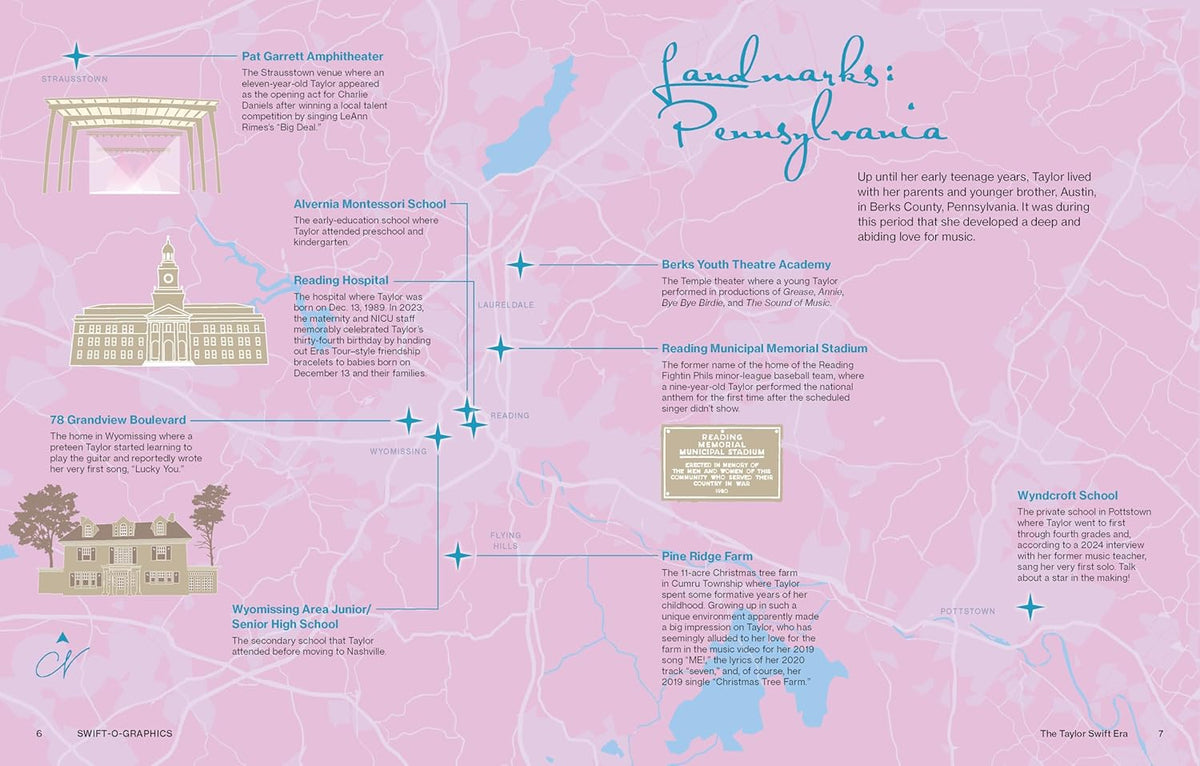 Landmarks:
Pennsylvania
Up until her early teenage years, Taylor lived
with her parents and younger brother, Austin,
in Berks County, Pennsylvania. It was during
this period that she developed a deep and
abiding love for music.
Pat Garrett Amphitheater
The Strausstown venue where an
eleven-year-old Taylor appeared
as the opening act for Charlie
Daniels after winning a local talent
competition by singing LeAnn
Rimes's “Big Deal.”
STRAUSSTOWN
Alvernia Montessori School
The early-education school where
Taylor attended preschool and
kindergarten.
Reading Hospital
The hospital where Taylor was
born on Dec. 13, 1989. In 2023,
the maternity and NICU staff
memorably celebrated Taylor's
thirty-fourth birthday by handing
out Eras Tour–style friendship
bracelets to babies born on
December 13 and their families.
78 Grandview Boulevard
The home in Wyomissing where a
preteen Taylor started learning to
play the guitar and reportedly wrote
her very first song, “Lucky You.”
Wyomissing Area Junior/
Senior High School
The secondary school that Taylor
attended before moving to Nashville.
N
LAURELDALE
READING
WYOMISSING
FLYING
HILLS
Berks Youth Theatre Academy
The Temple theater where a young Taylor
performed in productions of Grease, Annie,
Bye Bye Birdie, and The Sound of Music.
Reading Municipal Memorial Stadium
The former name of the home of the Reading
Fightin Phils minor-league baseball team, where
a nine-year-old Taylor performed the national
anthem for the first time after the scheduled
singer didn't show.
READING
MEMORIAL
MUNICIPAL STADIUM
ERECTED IN MEMORY OF
THE MEN AND WOMEN OF THIS
COMMUNITY WHO SERVED THEIR
COUNTRY IN WAR
1950
Pine Ridge Farm
The 11-acre Christmas tree farm
in Cumru Township where Taylor
spent some formative years of her
childhood. Growing up in such a
unique environment apparently made
a big impression on Taylor, who has
seemingly alluded to her love for the
farm in the music video for her 2019
song “ME!,” the lyrics of her 2020
track “seven,” and, of course, her
2019 single “Christmas Tree Farm.”
Wyndcroft School
The private school in Pottstown
where Taylor went to first
through fourth grades and,
according to a 2024 interview
with her former music teacher,
sang her very first solo. Talk
about a star in the making!
POTTSTOWN
6 SWIFT-O-GRAPHICS
The Taylor Swift Era 7